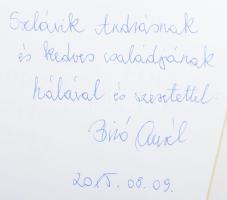 Szlávik Andrásnak
és kedves családjának
hálával és szeretettel
Bíró Aurél
2015. 08. 09.